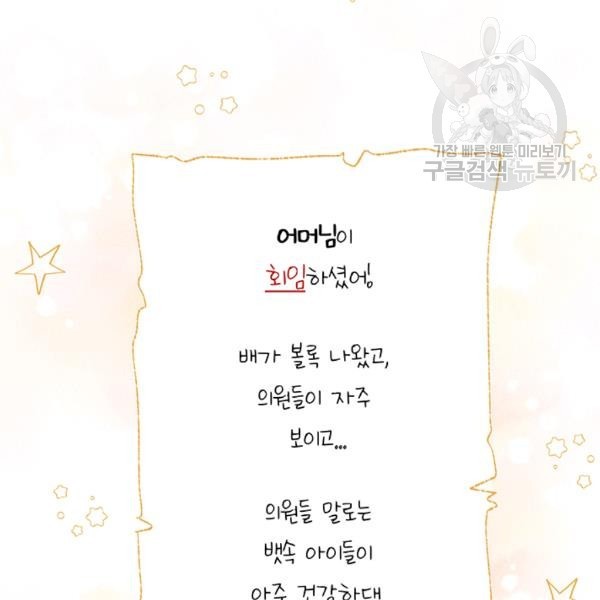 가장 빠른 웹툰 미리보기
구글검색 뉴토끼
어머님이
회임하셨어!
배가 볼록 나왔고,
의원들이 자주
보이고...
의원들 말로는
뱃속 아이들이
아주 건강하대